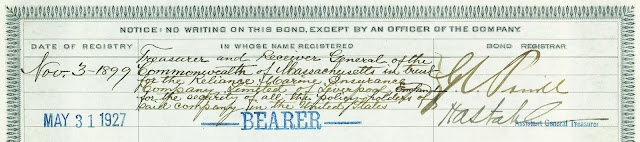 NOTICE: NO WRITING ON THIS BOND, EXCEPT BY AN OFFICER OF THE COMPANY.
DATE OF REGISTRY IN WHOSE NAME REGISTERED BOND REGISTRAR
Nov. 3-1899 Treasurer and Receiver General of the
Commonwealth of Massachusetts in trust
for the Reliance Marine Insurance
Company Limited of Liverpool
for the security of all the policy holders of
said company in the United States
MAY 31 1927 BEARER Assistant General Treasurer